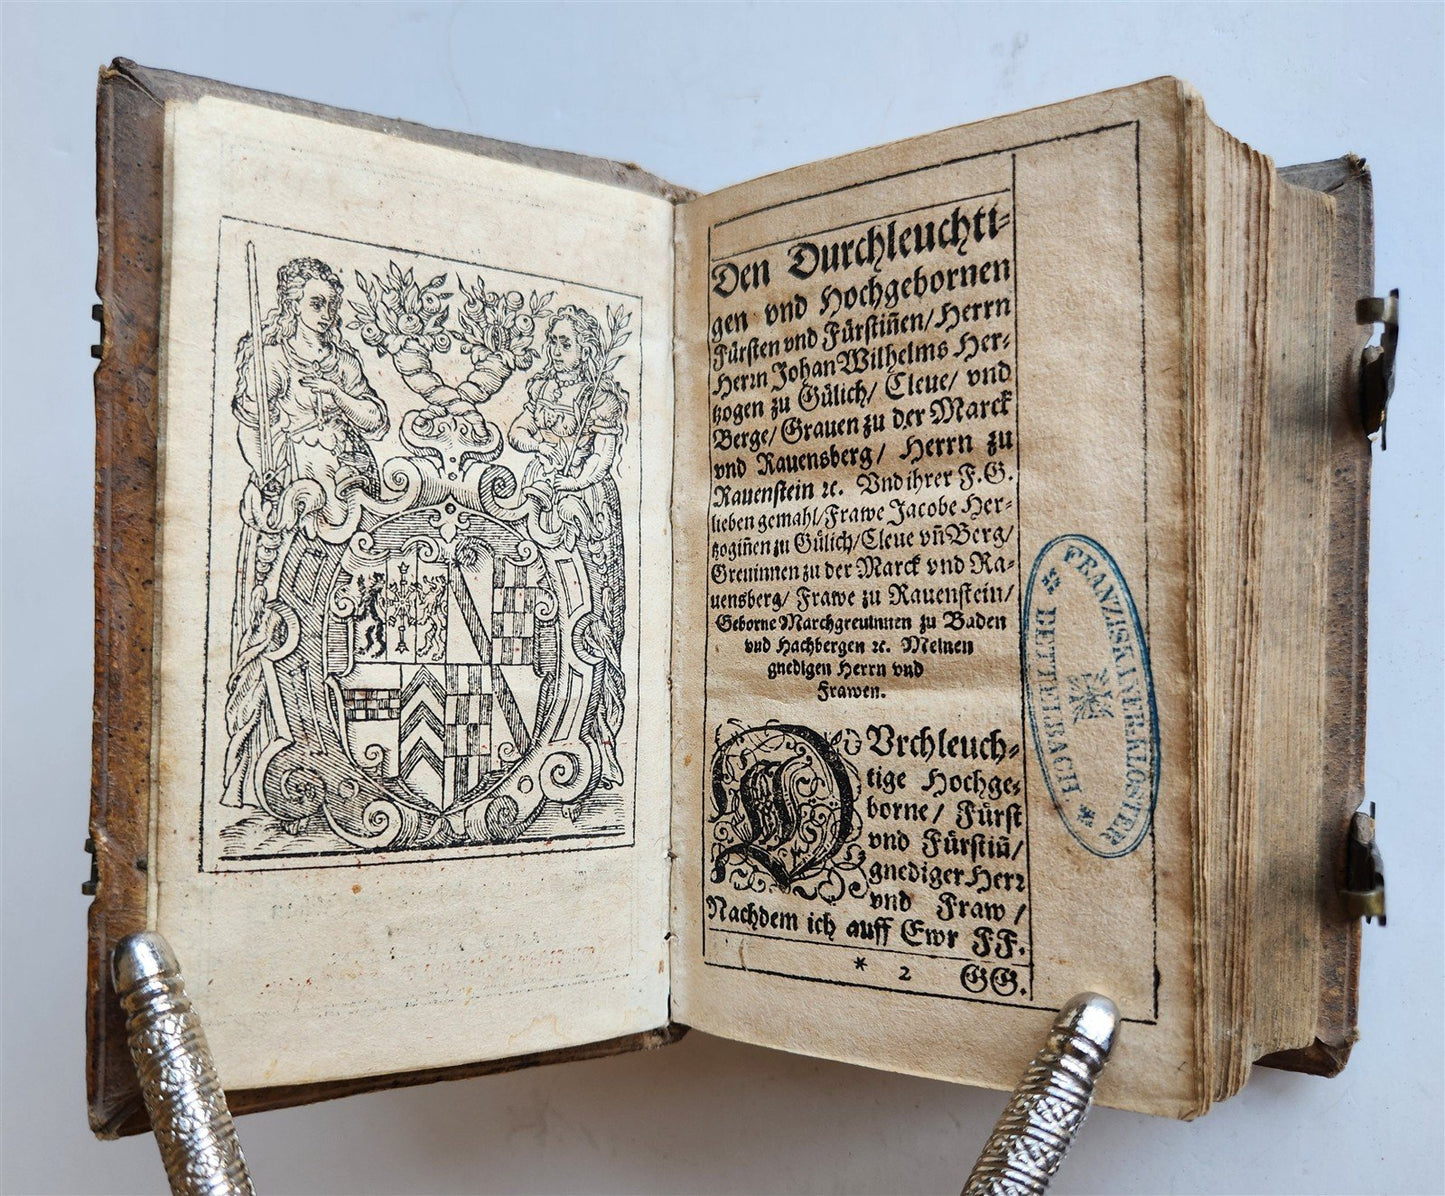 Den Durchleuchti⸗
gen vnd Hochgebornen
Fürsten vnd Fürstiñen/ Herrn
Herrn Johan Wilhelms Her⸗
tzogen zu Gülich/ Cleue/ vnd
Berge/ Grauen zu der Marck
vnd Rauensberg/ Herrn zu
Rauenstein ꝛc. Vnd ihrer F. G.
lieben gemahl/ Frawe Jacobe Her⸗
tzogiñen zu Gülich/ Cleue vñ Berg/
Greuinnen zu der Marck vnd Ra⸗
uensberg/ Frawe zu Rauenstein/
Geborne Marchgreuinnen zu Baden
vnd Hachbergen ꝛc. Meinen
gnedigen Herrn vnd
Frawen.
DVrchleuch⸗
tige Hochge⸗
borne/ Fürst
vnd Fürstiñ/
gnediger Herꝛ
vnd Fraw /
Nachdem ich auff Ewr FF.
* 2 GG.
FRANZISKANERKLOSTER
* DETTELBACH *